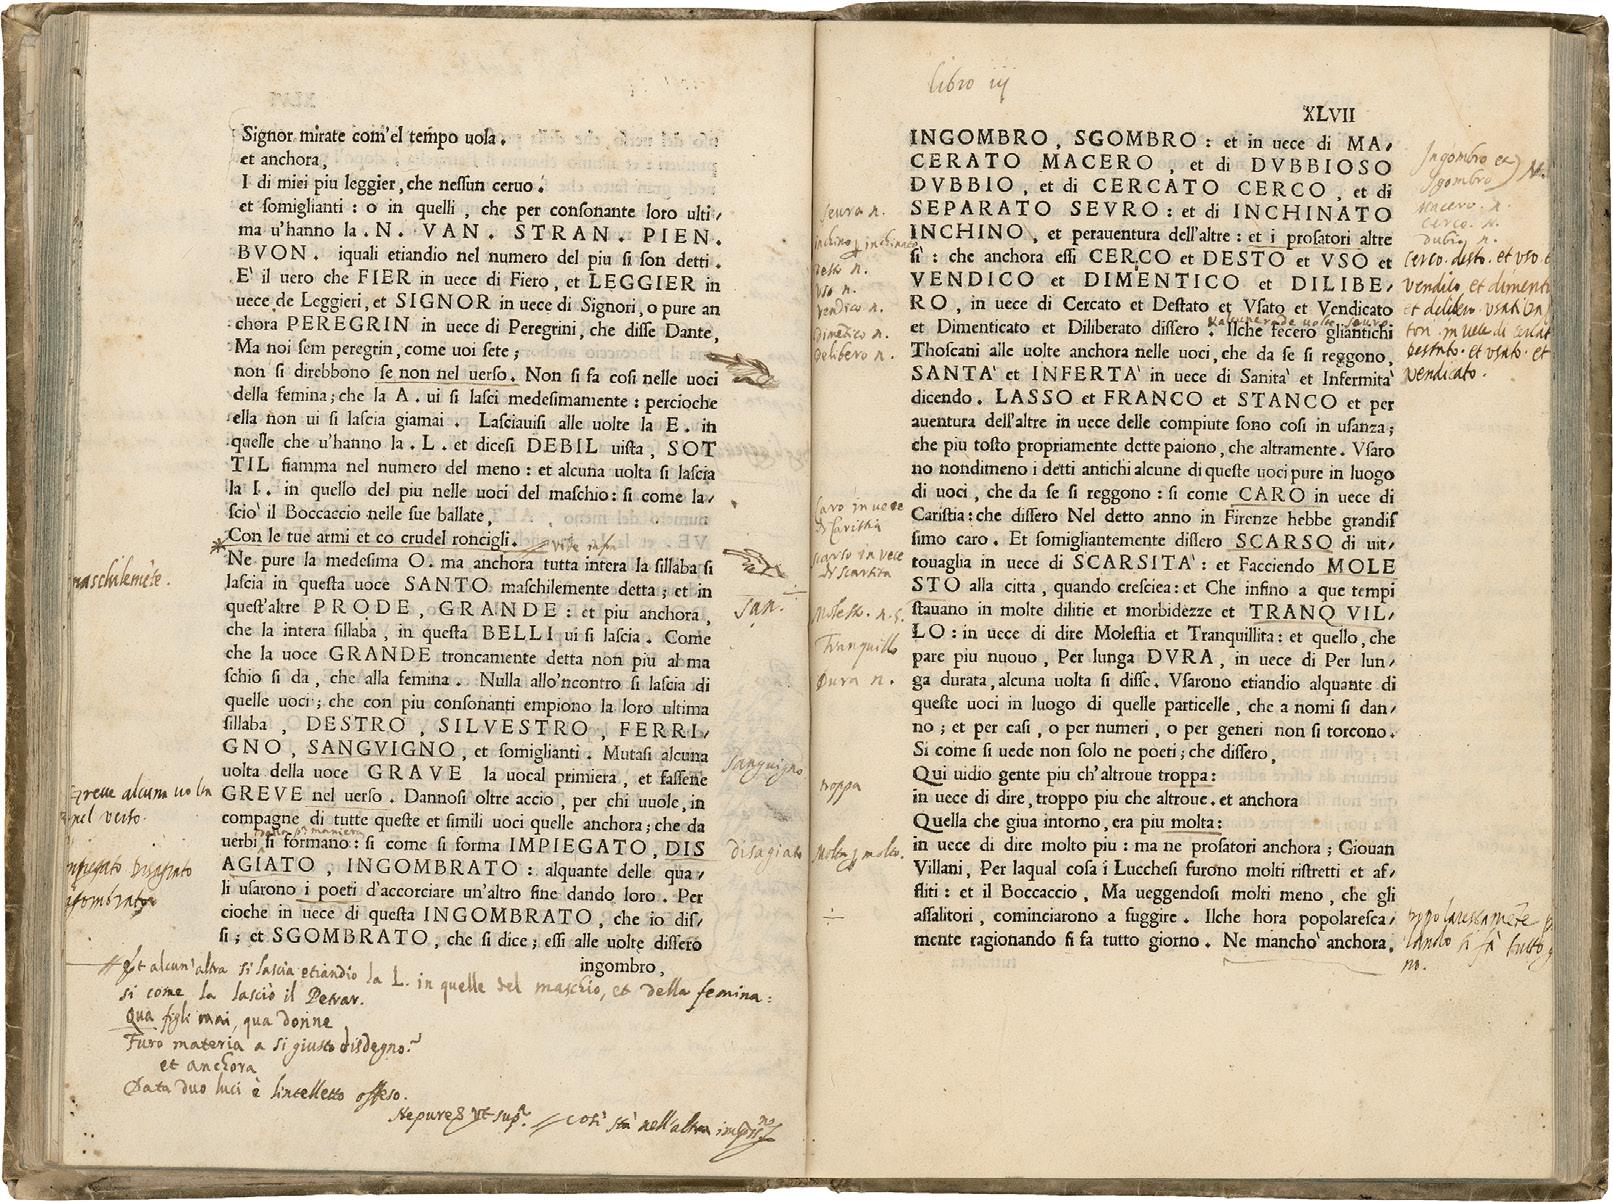 Signor mirate com'el tempo uola.
et anchora,
I di miei piu leggier, che nessun ceruo.
et somiglianti: o in quelli, che per consonante loro ulti/
ma u'hanno la .N. VAN. STRAN. PIEN.
BVON. iquali etiandio nel numero del piu si son detti.
E' il uero che FIER in uece di Fiero, et LEGGIER in
uece de Leggieri, et SIGNOR in uece di Signori, o pure an
chora PEREGRIN in uece di Peregrini, che disse Dante,
Ma noi sem peregrin, come uoi sete;
non si direbbono se non nel uerso. Non si fa cosi nelle uoci
della femina; che la A. ui si lasci medesimamente: percioche
ella non ui si lascia giamai. Lasciauisi alle uolte la E. in
quelle che u'hanno la .L. et dicesi DEBIL uista, SOT
TIL fiamma nel numero del meno: et alcuna uolta si lascia
la I. in quello del piu nelle uoci del maschio: si come la/
scio' il Boccaccio nelle sue ballate,
Con le tue armi et co crudel roncigli. vide infra
Ne pure la medesima O. ma anchora tutta intera la sillaba si
maschilemẽte.
lascia in questa uoce SANTO maschilemente detta; et in
quest'altre PRODE, GRANDE: et piu anchora,
san.
che la intera sillaba, in questa BELLI ui si lascia. Come
che la uoce GRANDE troncamente detta non piu al ma
schio si da, che alla femina. Nulla allo'ncontro si lascia di
quelle uoci; che con piu consonanti empiono la loro ultima
sillaba, DESTRO, SILVESTRO, FERRI/
GNO, SANGVIGNO, et somiglianti. Mutasi alcuna
Sanguigno
uolta della uoce GRAVE la uocal primiera, et fassene
GREVE nel uerso. Dannosi oltre accio, per chi uuole, in
Greve alcuna uolta
nel verso.
compagne di tutte queste et simili uoci quelle anchora; che da
uerbi si formano: si come si forma IMPIEGATO, DIS
AGIATO, INGOMBRATO: alquante delle qua/
disagiato
impiegato Disagiato
ingombrato
li usarono i poeti d'accorciare un'altro fine dando loro. Per
cioche in uece di questa INGOMBRATO, che io dis/
si; et SGOMBRATO, che si dice; essi alle uolte dissero
ingombro,
Et alcun'altra si lascia etiandio la L. in quelle del maschio, et della femina:
si come la lasciò il Petrar.
Qua figli mai, qua donne
Furo materia a si giusto disdegno?
et anchora
Data duo luci è l'intelletto offeso.
Ne pure &c vt supª. così stà nell'altra
libro iij
XLVII
INGOMBRO, SGOMBRO: et in uece di MA/
CERATO MACERO, et di DVBBIOSO
DVBBIO, et di CERCATO CERCO, et di
SEPARATO SEVRO: et di INCHINATO
INCHINO, et perauentura dell'altre: et i prosatori altre
si: che anchora essi CERCO et DESTO et VSO et
VENDICO et DIMENTICO et DILIBE/
RO, in uece di Cercato et Destato et Vsato et Vendicato
et Dimenticato et Diliberato dissero. Ilche fecero gliantichi
Thoscani alle uolte anchora nelle uoci, che da se si reggono,
SANTA' et INFERTA' in uece di Sanita' et Infermita'
dicendo. LASSO et FRANCO et STANCO et per
auentura dell'altre in uece delle compiute sono cosi in usanza;
che piu tosto propriamente dette paiono, che altramente. Vsaro
no nondimeno i detti antichi alcune di queste uoci pure in luogo
di uoci, che da se si reggono: si come CARO in uece di
Caristia: che dissero Nel detto anno in Firenze hebbe grandis
simo caro. Et somigliantemente dissero SCARSO di uit/
touaglia in uece di SCARSITA': et Facciendo MOLE
STO alla citta, quando cresciea: et Che infino a que tempi
stauano in molte dilitie et morbidezze et TRANQVIL/
LO: in uece di dire Molestia et Tranquillita: et quello, che
pare piu nuouo, Per lunga DVRA, in uece di Per lun/
ga durata, alcuna uolta si disse. Vsarono etiandio alquante di
queste uoci in luogo di quelle particelle, che a nomi si dan/
no; et per casi, o per numeri, o per generi non si torcono.
Si come si uede non solo ne poeti; che dissero,
Qui uidio gente piu ch'altroue troppa:
in uece di dire, troppo piu che altroue. et anchora
Quella che giua intorno, era piu molta:
in uece di dire molto piu: ma ne prosatori anchora; Giouan
Villani, Per laqual cosa i Lucchesi furono molti ristretti et af/
fliti: et il Boccaccio, Ma ueggendosi molti meno, che gli
assalitori, cominciarono a fuggire. Ilche hora popolaresca/
mente ragionando si fa tutto giorno. Ne mancho' anchora,
seura n.
inchino
desto n.
vso n.
vendico n.
dimẽtico n.
delibero n.
Caro in uece
di Caristia
scarso in vece
di scarsita
Molesto. n.
Tranquillo
Dura n.
troppa
Molta molto.
Ingombro et
Sgombro
Macero. n.
cerco. n.
dubio n.
cerco. desto. et vso. e
vendilo, et dimenti
et delibero
in uece di
Destato. et vsato. et
vendicato.